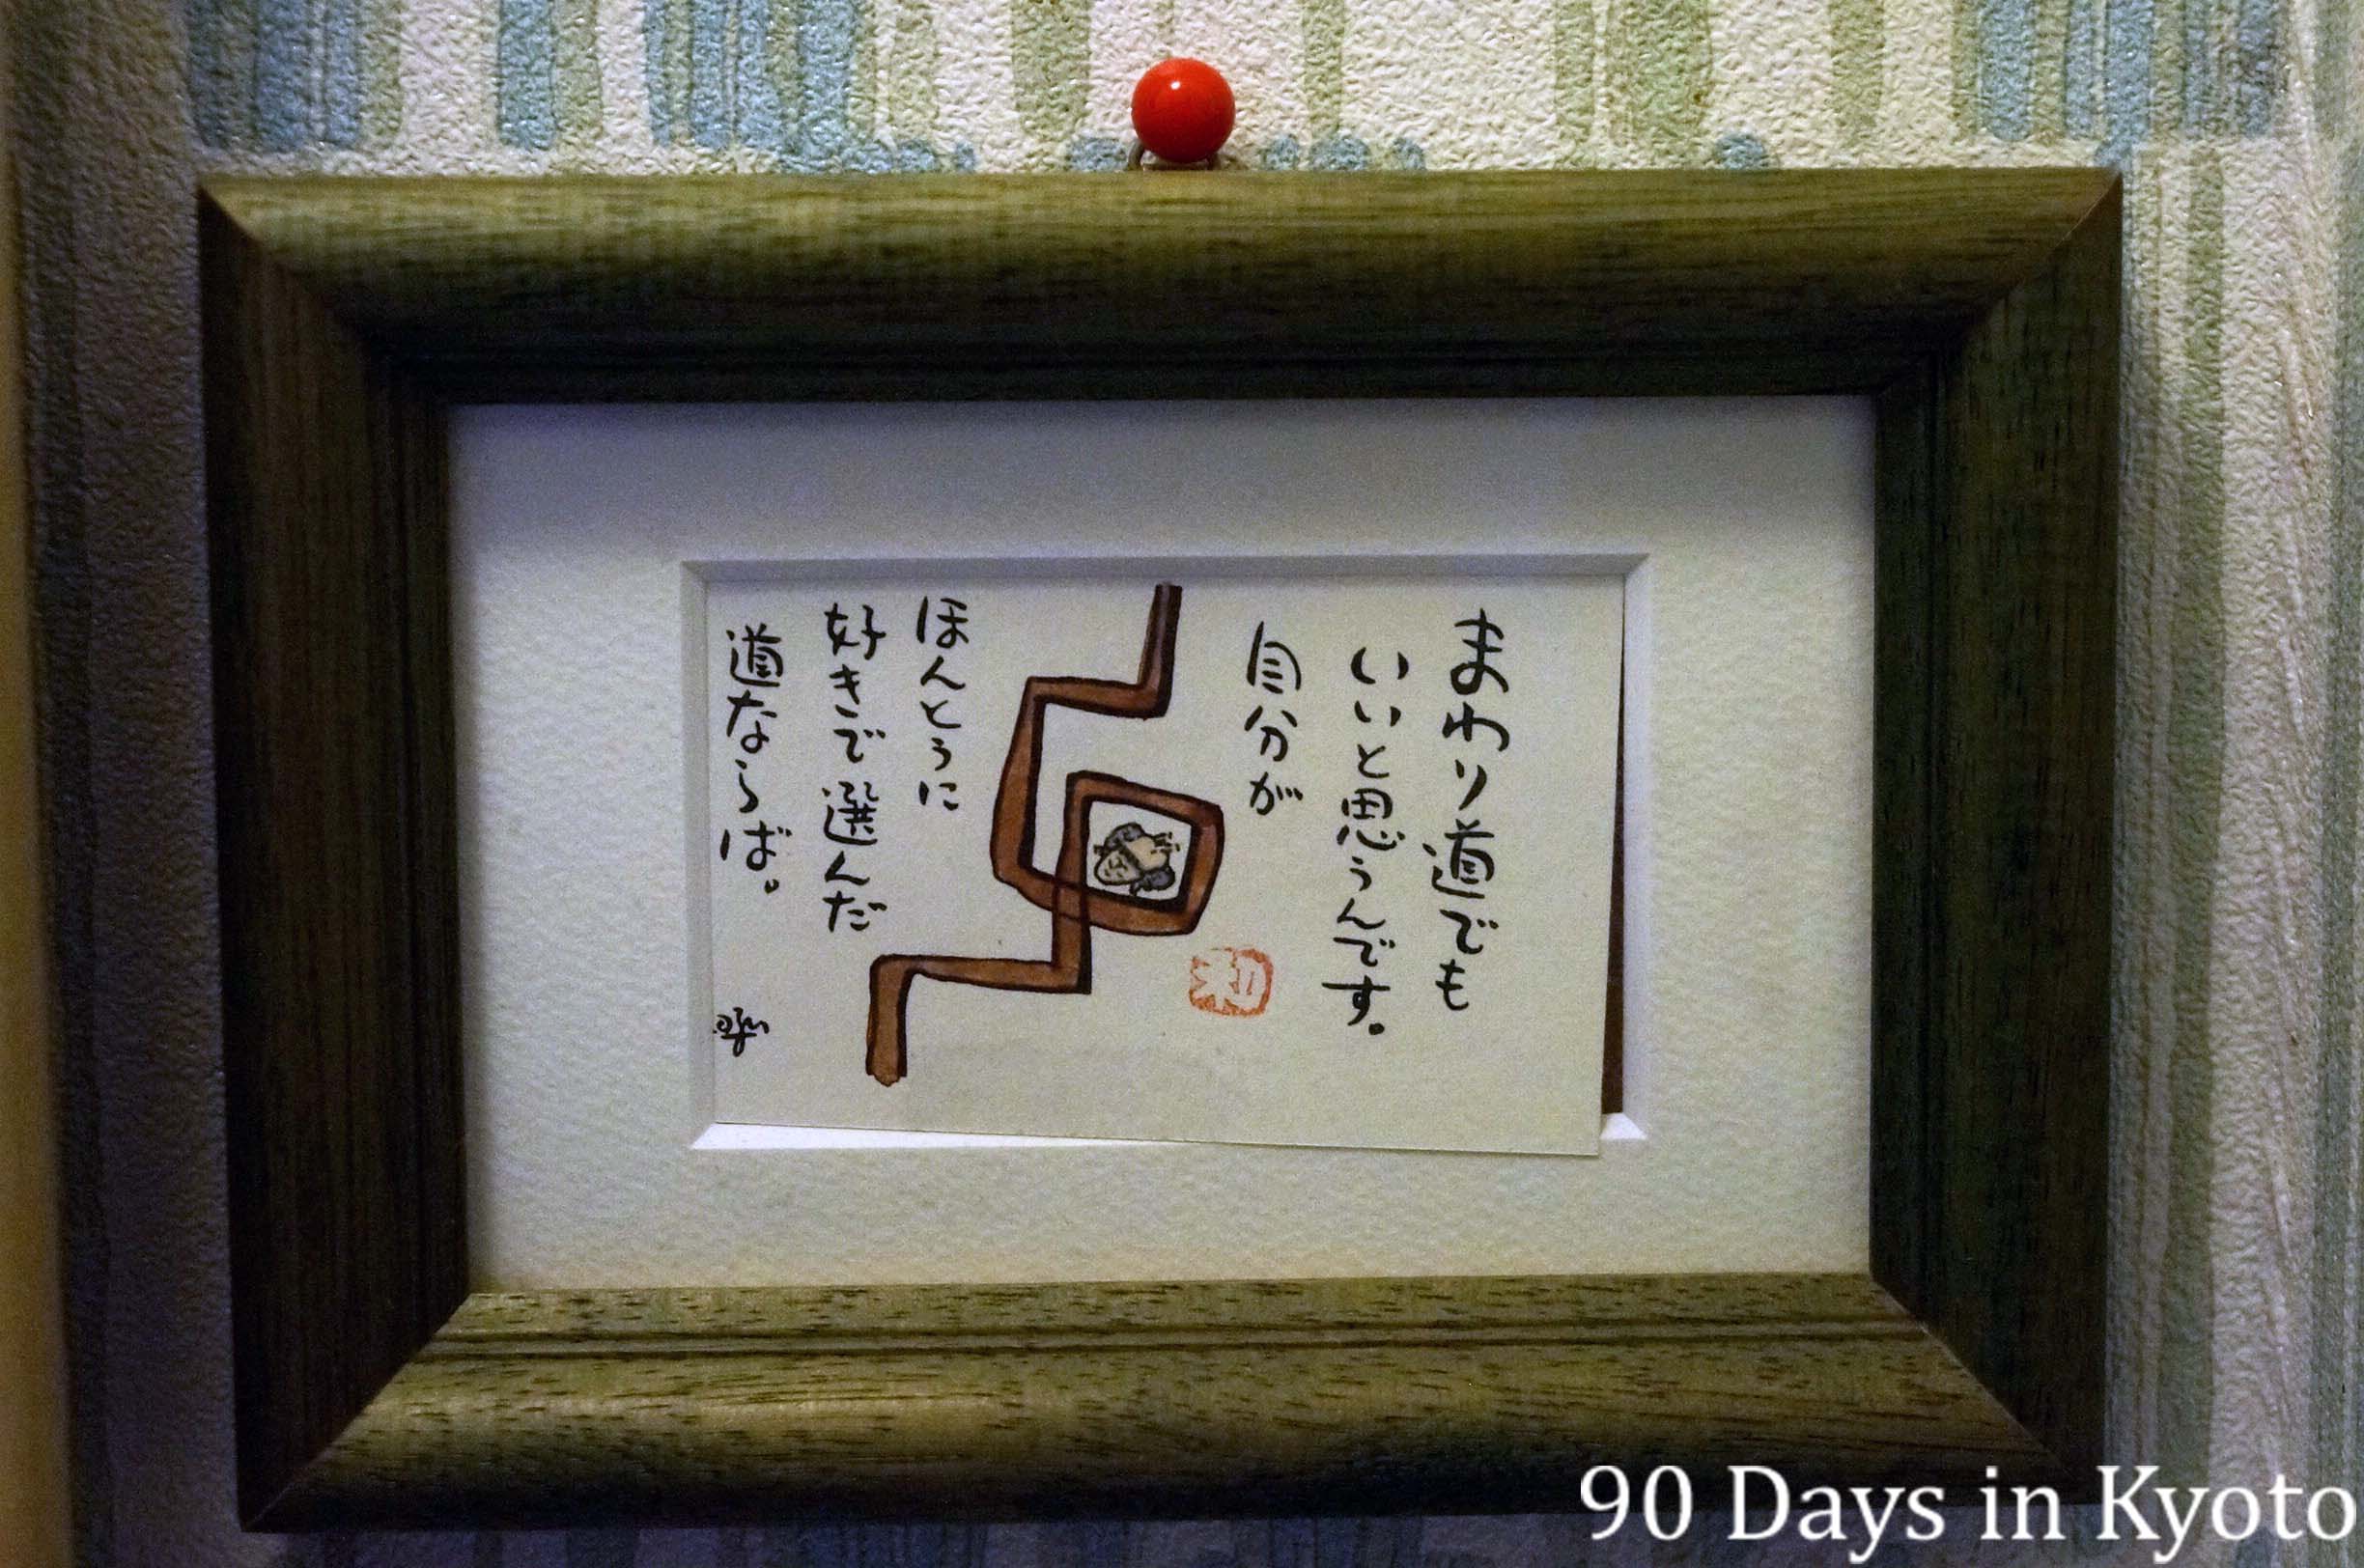 まわり道でも
いいと思うんです。
自分が
ほんとうに
好きで選んだ
道ならば。
90 Days in Kyoto